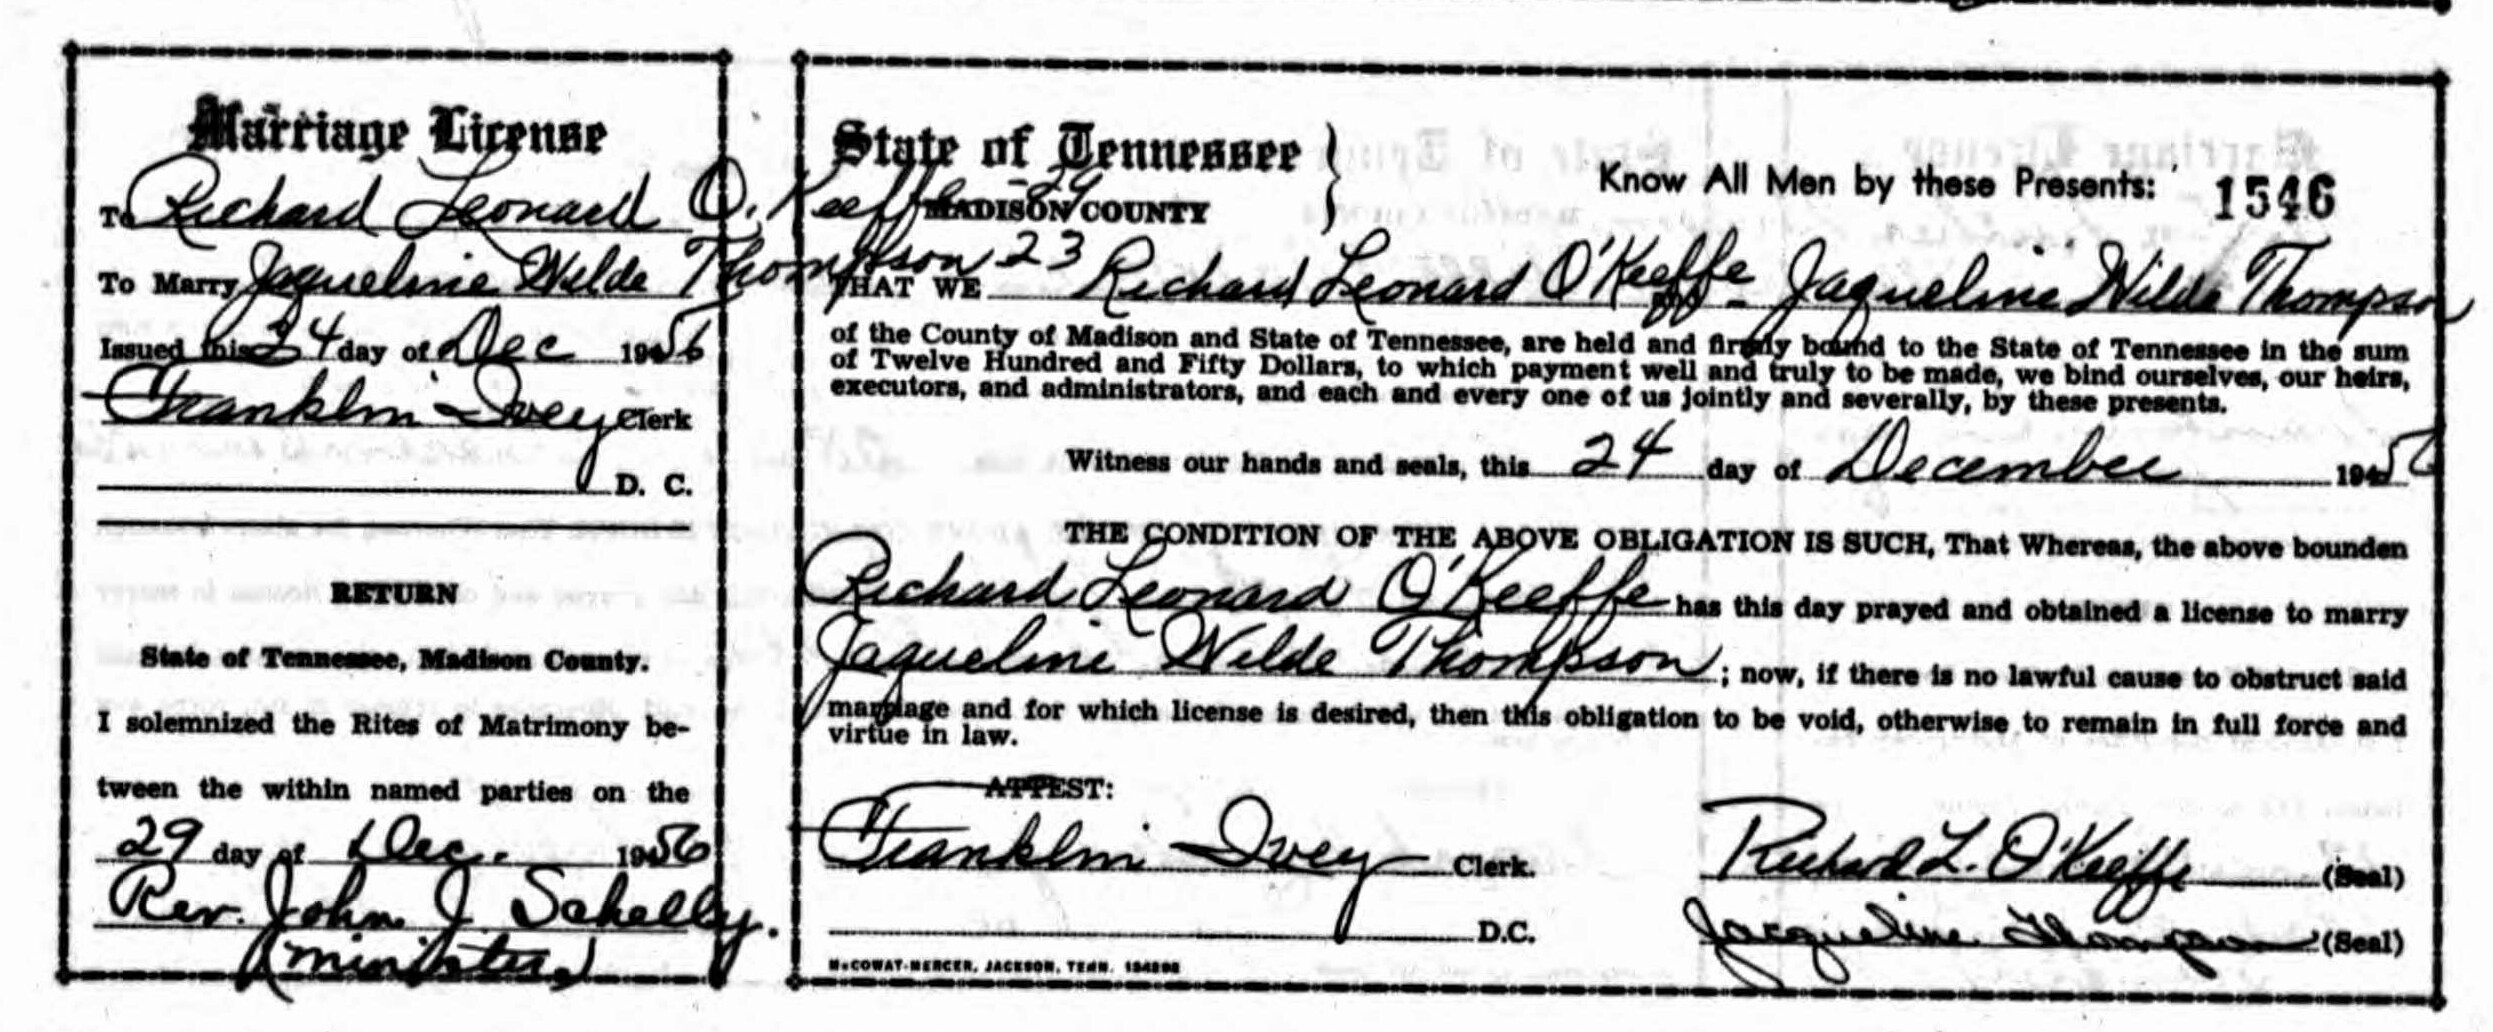 Marriage License
To Richard Leonard O'Keeffe - 29
To Marry Jaqueline Wilde Thompson 23
Issued this 24 day of Dec 1956
Franklin Ivey Clerk
D. C.
RETURN
State of Tennessee, Madison County.
I solemnized the Rites of Matrimony be-
tween the within named parties on the
29 day of Dec. 1956
Rev. John J Schelly.
(minister)
State of Tennessee
MADISON COUNTY
Know All Men by these Presents: 1546
THAT WE Richard Leonard O'Keeffe - Jaqueline Wilde Thompson
of the County of Madison and State of Tennessee, are held and firmly bound to the State of Tennessee in the sum
of Twelve Hundred and Fifty Dollars, to which payment well and truly to be made, we bind ourselves, our heirs,
executors, and administrators, and each and every one of us jointly and severally, by these presents.
Witness our hands and seals, this 24 day of December 1956
THE CONDITION OF THE ABOVE OBLIGATION IS SUCH, That Whereas, the above bounden
Richard Leonard O'Keeffe has this day prayed and obtained a license to marry
Jaqueline Wilde Thompson ; now, if there is no lawful cause to obstruct said
marriage and for which license is desired, then this obligation to be void, otherwise to remain in full force and
virtue in law.
ATTEST:
Franklin Ivey Clerk.
D.C.
Richard L. O'Keeffe (Seal)
Jacqueline Thompson (Seal)
McCOWAT-MERCER, JACKSON, TENN.